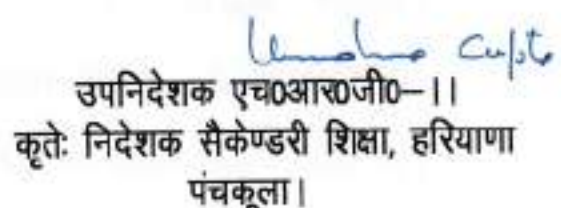 Gupta
उपनिदेशक एच0आर0जी0–।।
कृतेः निदेशक सैकेण्डरी शिक्षा, हरियाणा
पंचकूला।